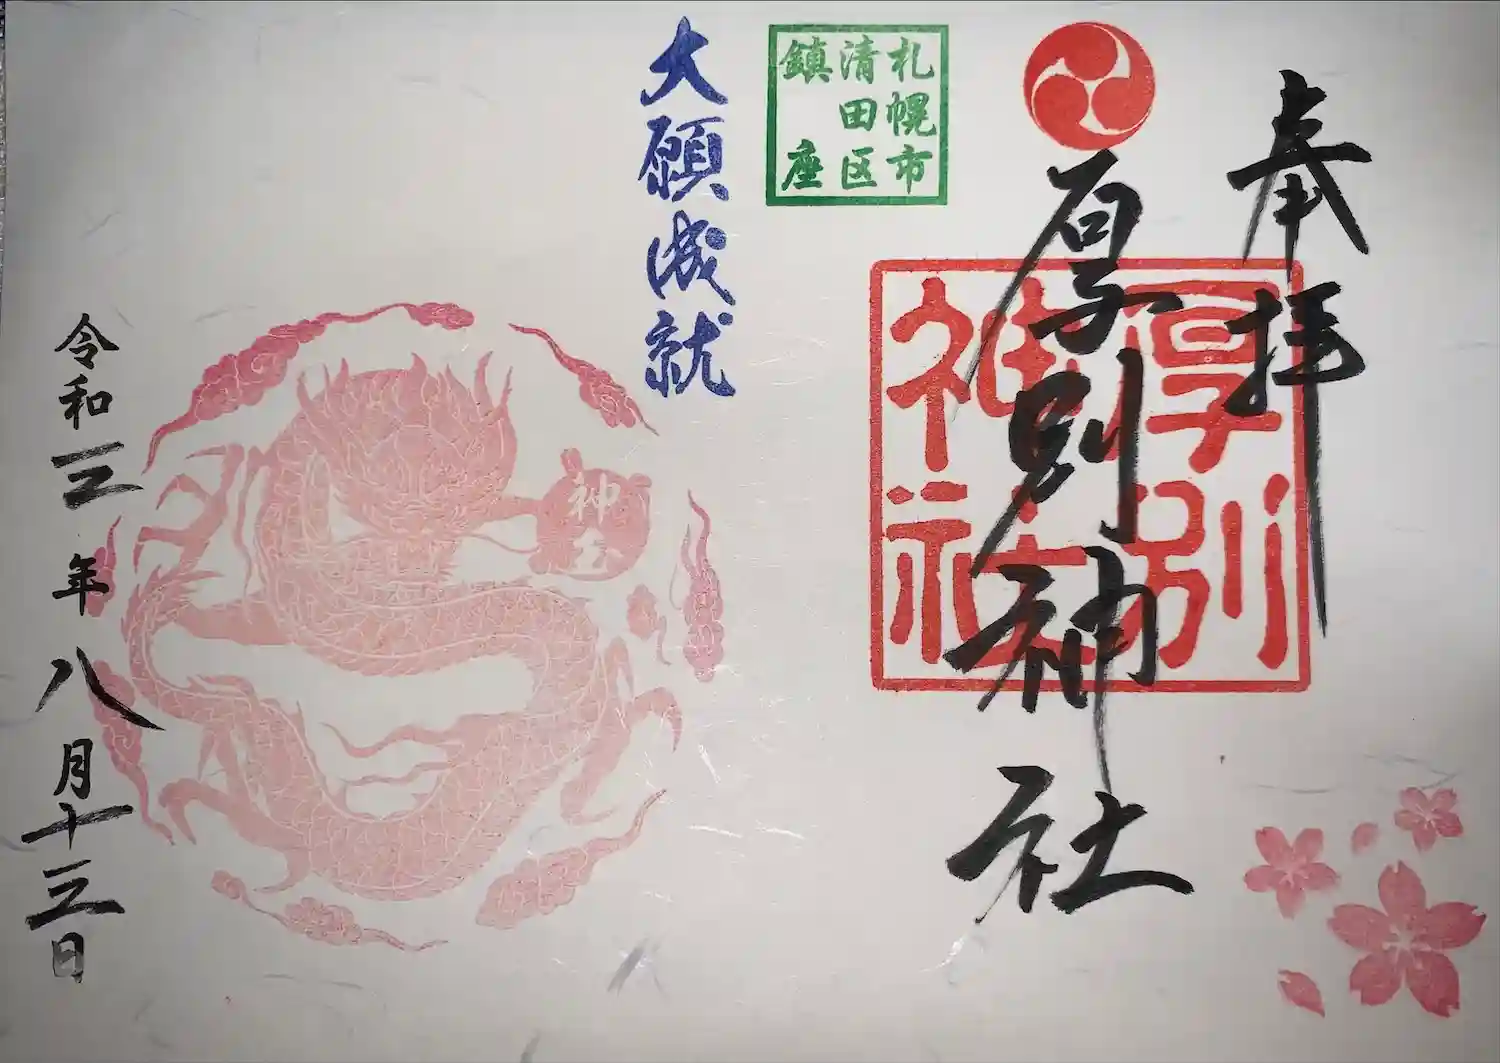 奉拝
厚別神社
厚別
神社
札幌市
清田区
鎮座
大願成就
神
玉
令和三年八月十三日